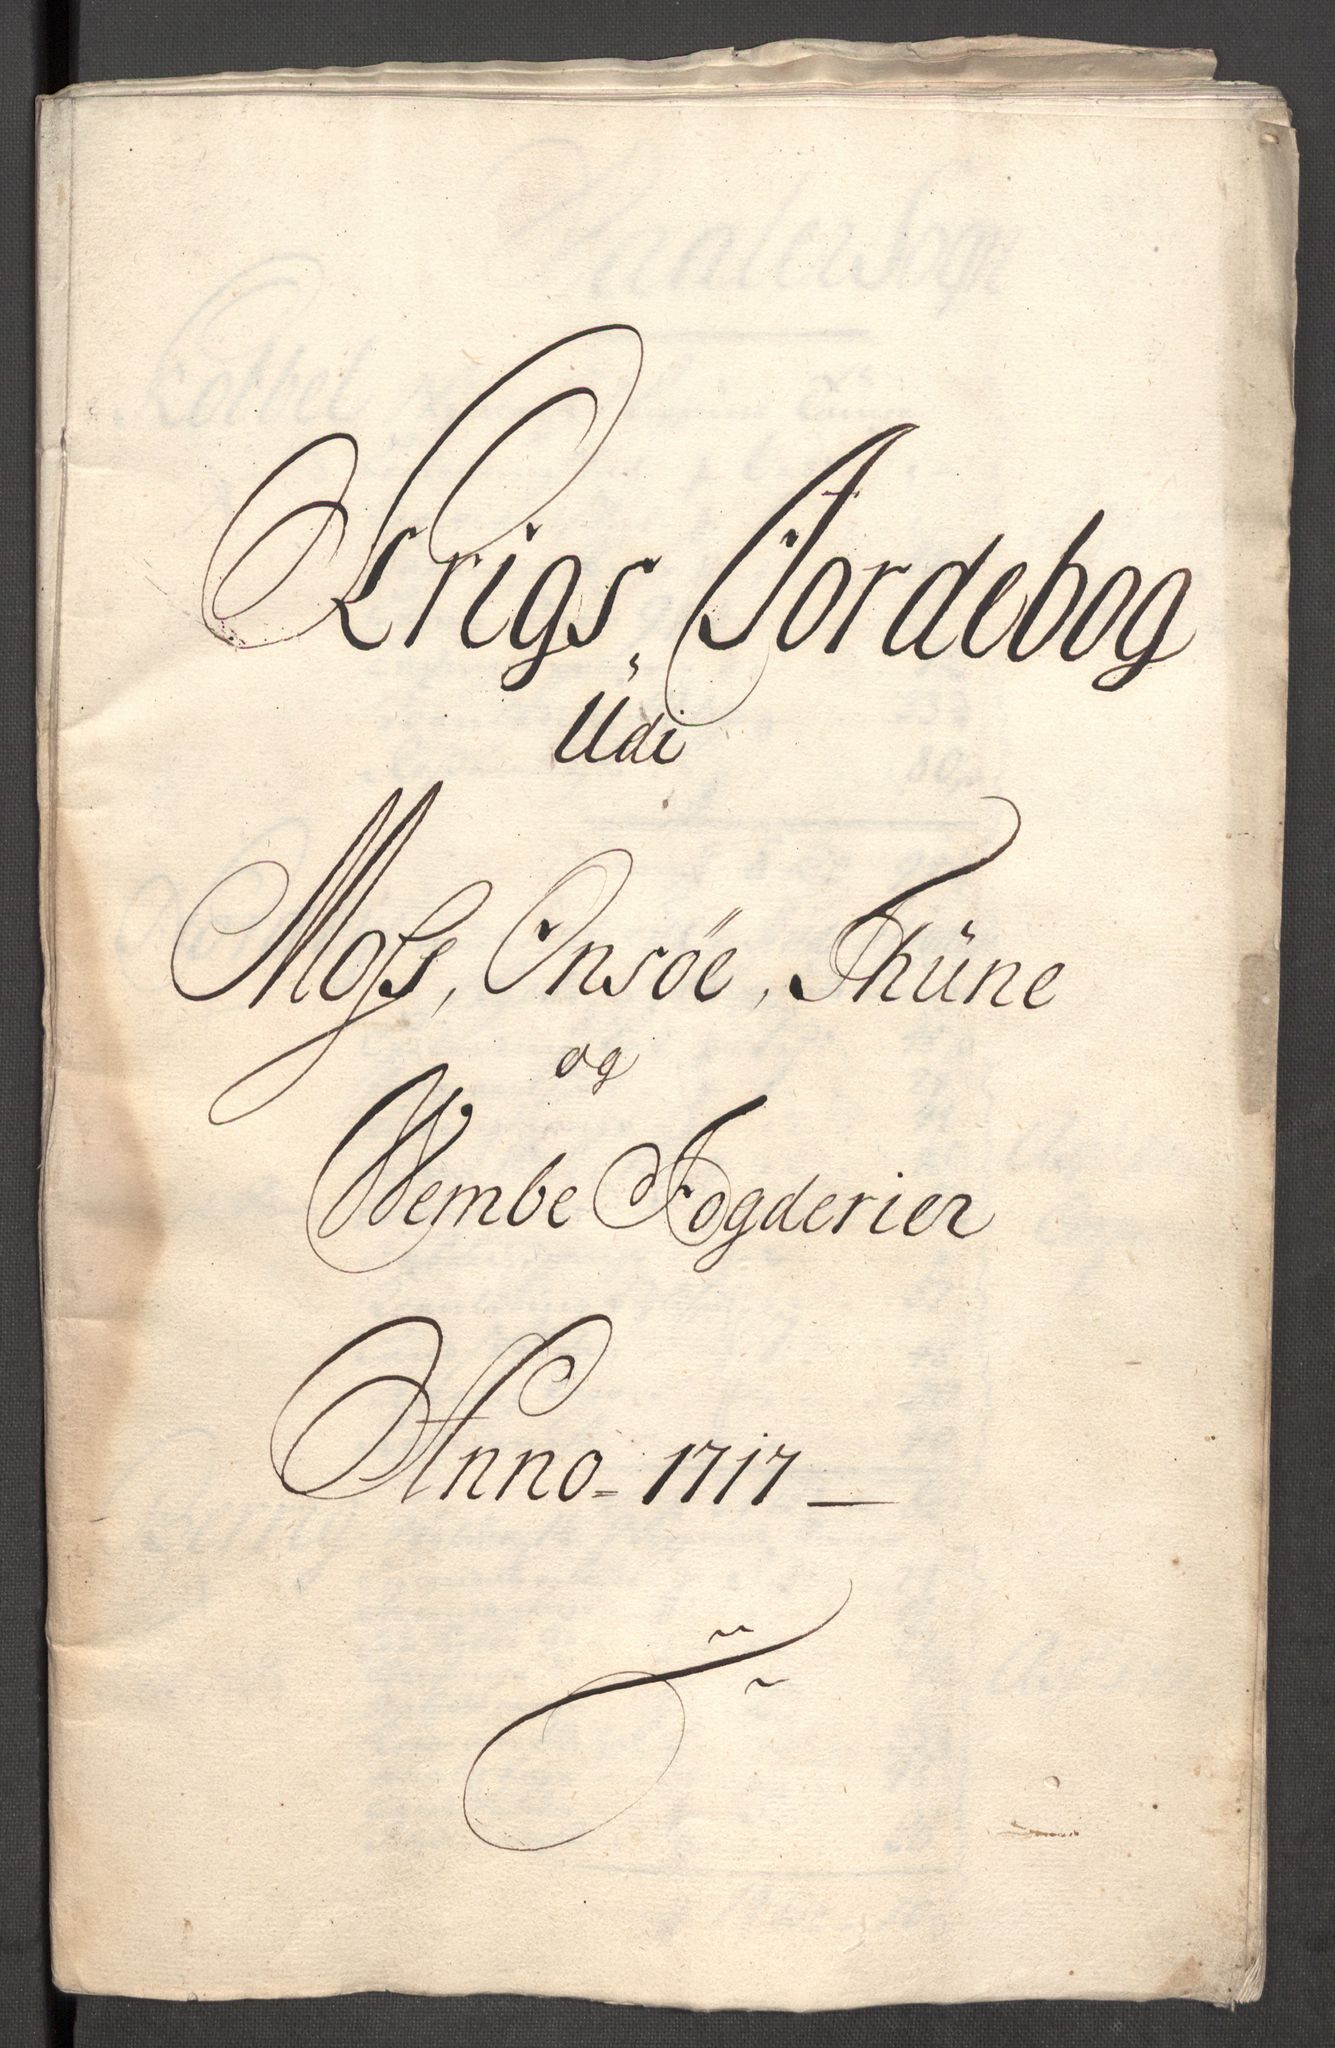 Krigs, Jordebog
Udi
Moss, Onsöe, Thüne
og
Wembe Fogderier
Anno = 1717 —